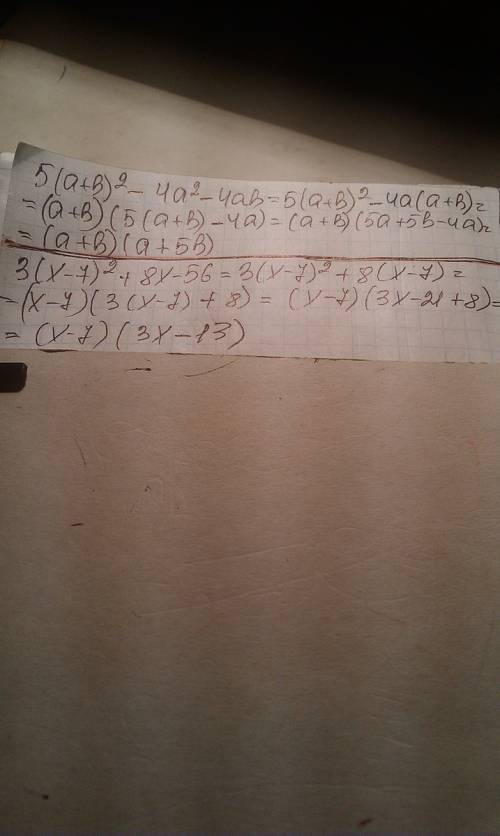 5(a+b)² - 4a² - 4ab = 5(a+b)² - 4a(a+b) =
= (a+b)(5(a+b) - 4a) = (a+b)(5a+5b-4a) =
= (a+b)(a+5b)
3(x-7)² + 8x - 56 = 3(x-7)² + 8(x-7) =
- (x-7)(3(x-7) + 8) = (x-7)(3x-21+8) =
= (x-7)(3x-13)